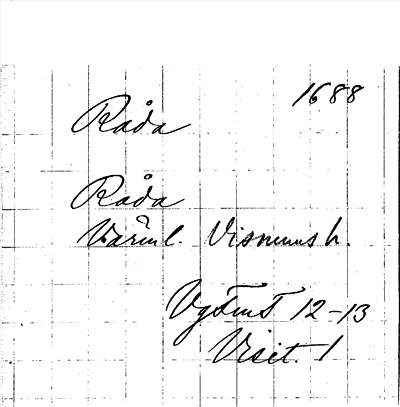 1688
Råda
Råda
Värml. Visnums h.
VgFmT 12-13
Visit. 1